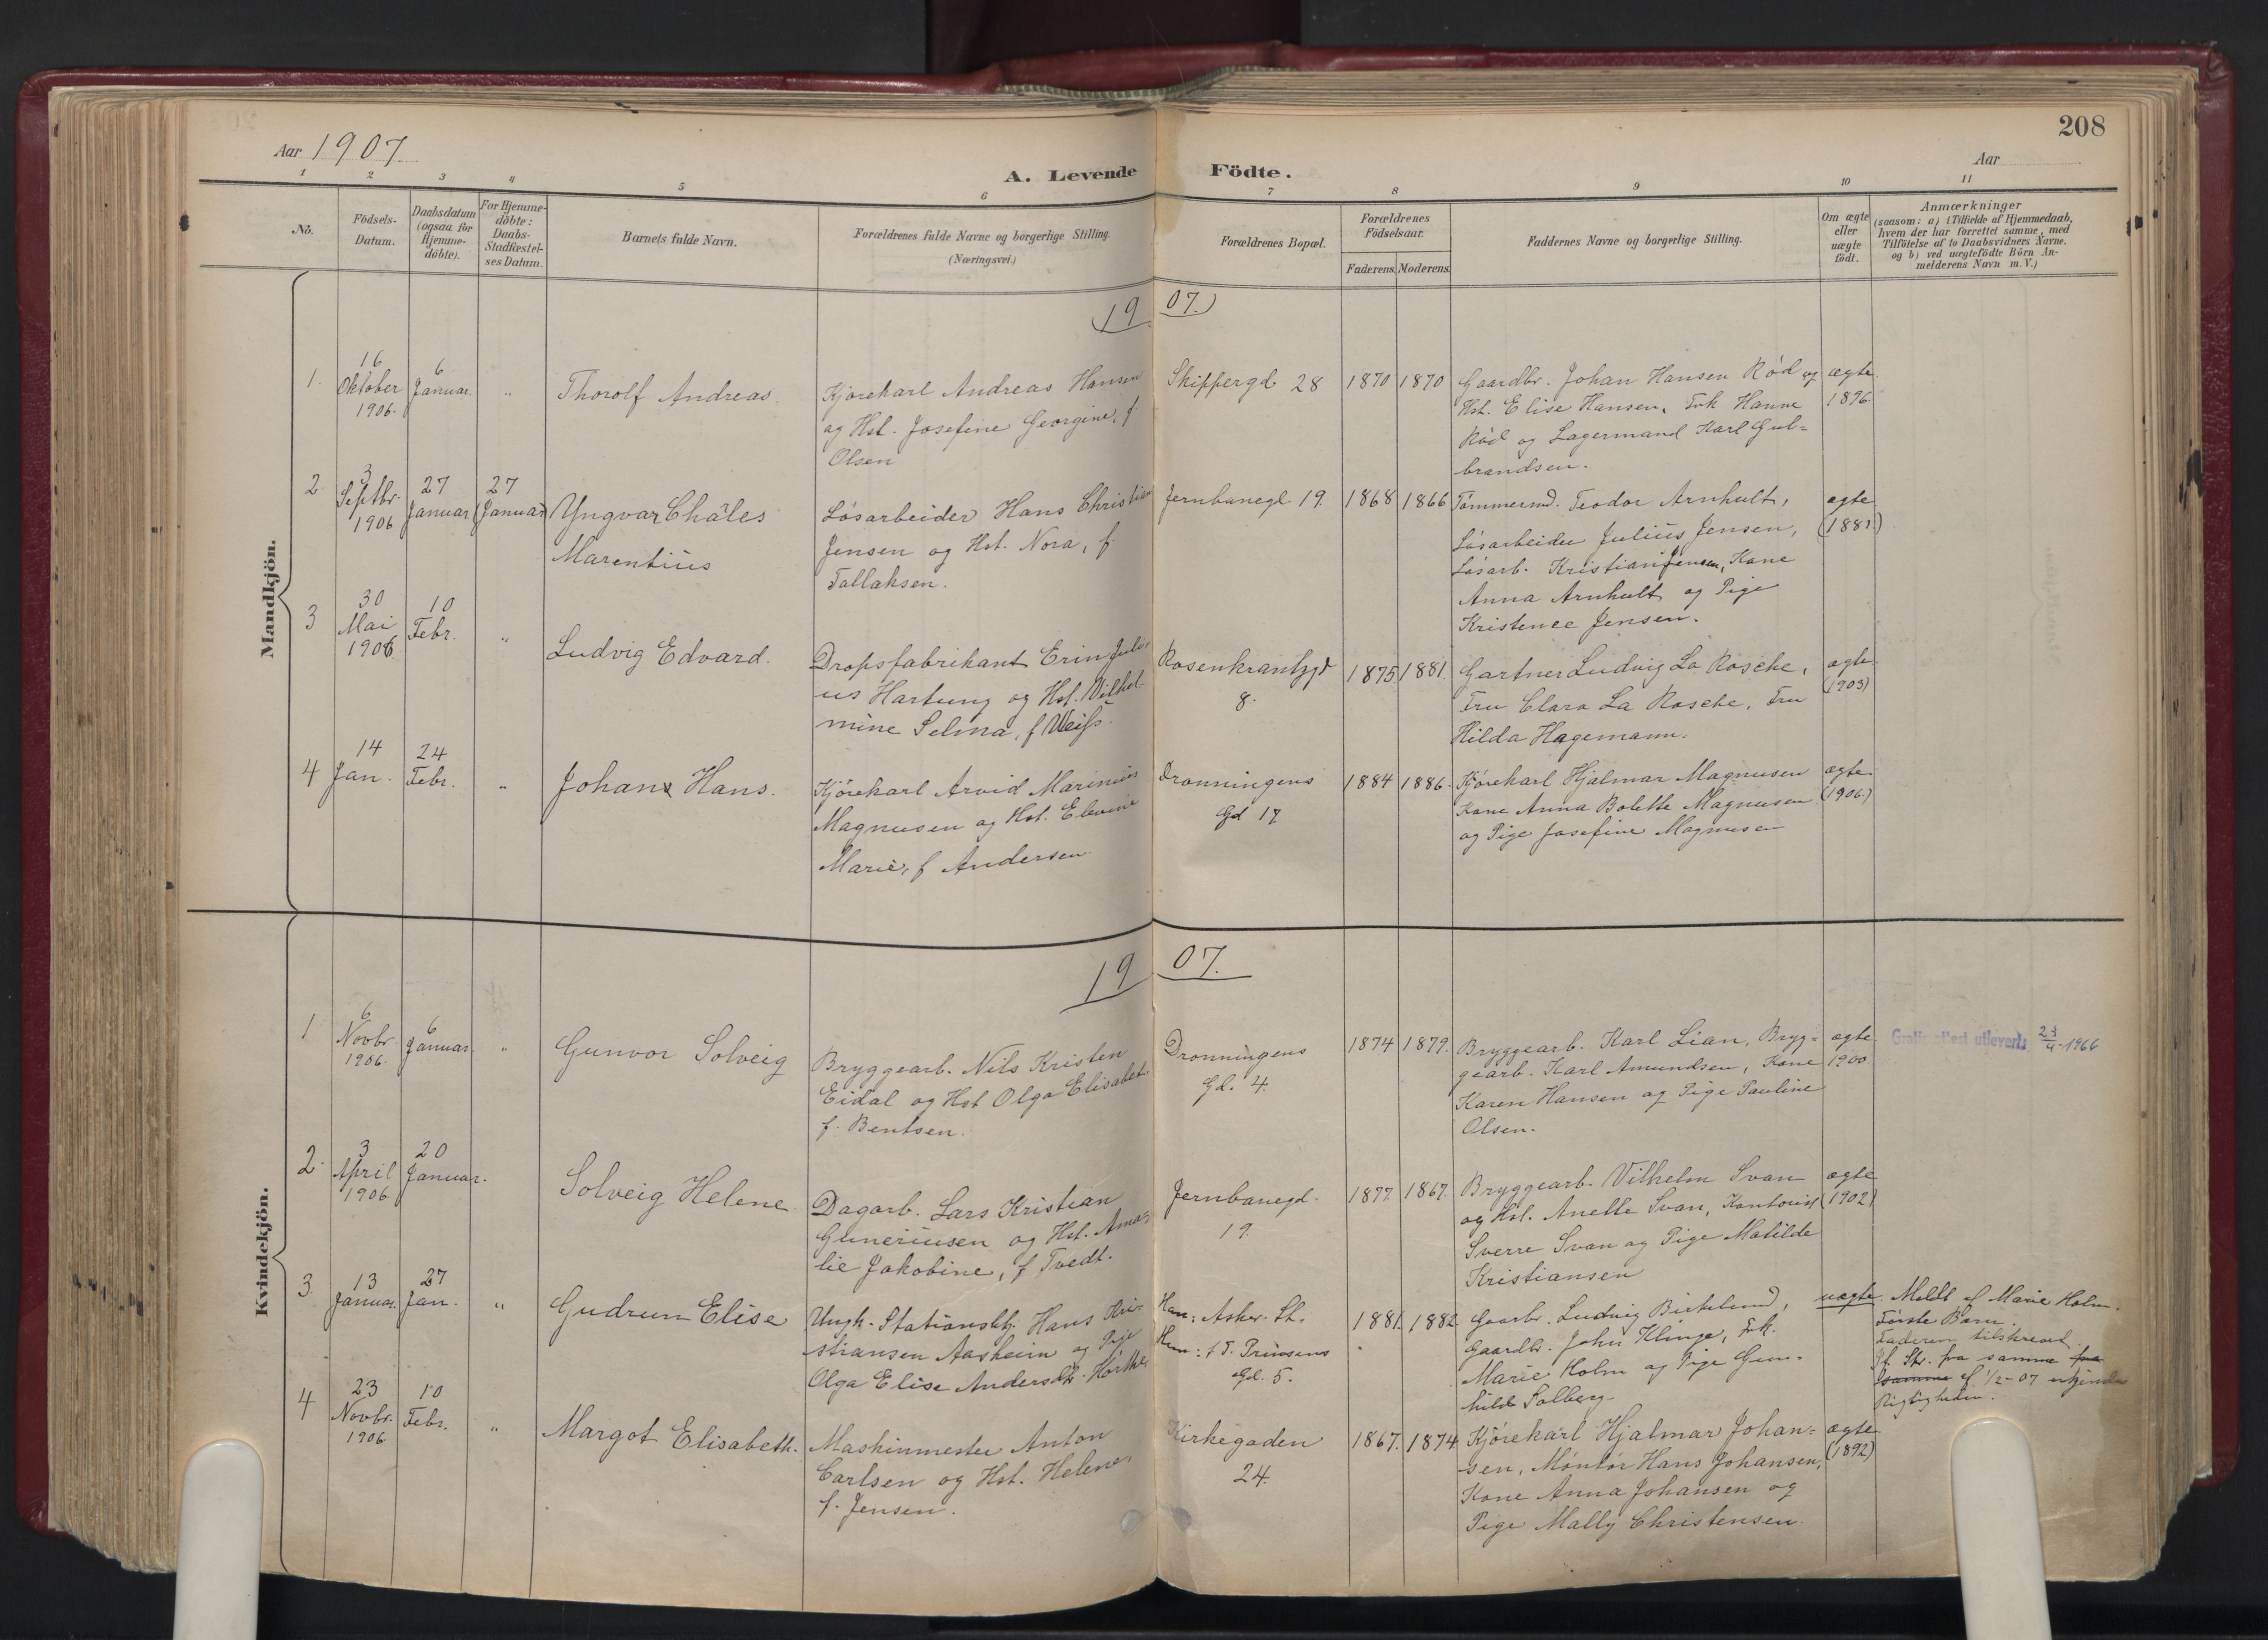 208
Aar 1907.
Aar
A. Levende Födte.
1 2 3 4 5 6 7 8 9 10 11
No.
Födsels-
Datum.
Daabsdatum
(ogsaa for
Hjemme-
döbte).
For Hjemme-
döbte:
Daabs-
Stadfæstel-
ses Datum.
Barnets fulde Navn.
Forældrenes fulde Navne og borgerlige Stilling.
(Næringsvei.)
Forældrenes Bopæl.
Forældrenes
Födselsaar.
Faderens. Moderens.
Faddernes Navne og borgerlige Stilling.
Om ægte
eller
uægte
födt.
Anmærkninger
(saasom: a) i Tilfælde af Hjemmedaab,
hvem der har forrettet samme, med
Tilföielse af to Daabsvidners Navne.
og b) ved uægtefödte Börn An-
melderens Navn m. V.)
Mandkjön.
19 07.
1.
16
Oktober
1906.
6
Januar.
"
Thorolf Andreas.
Kjørekarl Andreas Hansen
og Hst. Josefine Georgine, f.
Olsen
Skippergd 28
1870 1870
Gaardbr. Johan Hansen Rød og
Hst. Elise Hansen, Frk Hanne
Rød og Lagermand Karl Gul=
brandsen.
ægte
1896.
2.
3
Septbr.
1906
27
Januar
27
Januar
Yngvar Chales
Marentius
Løsarbeider Hans Christian
Jensen og Hst. Nora, f.
Tallaksen.
Jernbanegd. 19.
1868 1866
Tømmermd. Teodor Arnhult,
Løsarbeider Julius Jensen,
Løsarb. Kristian Jensen, Kone
Anna Arnhult og Pige
Kristence Jensen.
ægte
(1881.)
3
30
Mai
1906.
10
Febr.
"
Ludvig Edvard.
Dropsfabrikant Erin Juli-
us Hartung og Hst. Vilhel-
mine Selma, f Weiss.
Rosenkrantzgd
8.
1875 1881.
Gartner Ludvig La Rosche,
Fru Clara La Rosche, Fru
Hilda Hagemann.
ægte
(1903)
4
14
Jan.
24
Febr.
"
Johan Hans.
Kjørekarl Arvid Marinius
Magnusen og Hst. Elevine
Marie, f Andersen
Dronningens
Gd 17
1884 1886.
Kjørekarl Hjalmar Magnusen
Kone Anna Bolette Magnusen
og Pige Josefine Magnusen
ægte
(1906.)
Kvindekjön.
19 07.
1
6
Novbr.
1906.
6
Januar
"
Gunvor Solveig
Bryggearb. Nils Kristen
Eidal og Hst Olga Elisabet
f. Bentsen.
Dronningens
Gd. 4.
1874 1879.
Bryggearb. Karl Lian, Bryg=
gearb. Karl Amundsen, Kone
Karen Hansen og Pige Pauline
Olsen.
ægte
1900.
Gratis attest utlevert 23/4-1966
2.
3
April
1906
20
Januar.
Solveig Helene
Dagarb. Lars Kristian
Guneriusen og Hst. Ama=
lie Jakobine, f Tvedt.
Jernbanegd.
19.
1877. 1867.
Bryggearb. Vilhelm Svan
og Hst. Anette Svan, Kontorist
Sverre Svan og Pige Matilde
Kristiansen
ægte
(1902)
3.
13
Januar.
27
Jan.
"
Gudrun Elise
Ungk. Stationsbtj. Hans Kri-
stiansen Aasheim og Pige
Olga Elise Andersdt.
Han: Asker St.
Hun: f. T. Prinsens
Gd. 5.
1881. 1882.
Gaarbr. Ludvig Birkelund,
Gaardbr. John Klinge, Frk.
Marie Holm og Pige Gun-
hild Solberg
uægte.
Meldt af Marie Holm.
Første Barn.
Faderen tilskrevet
Pf. Skr. fra samme fra
samme af 1/2-07 erkjender
Rigtigheden.
4
23
Novbr.
1906
10
Febr.
"
Margot Elisabeth.
Maskinmester Anton
Carlsen og Hst. Helene,
f. Jensen.
Kirkegaden
24.
1867. 1874
Kjørekarl Hjalmar Johan=
sen, Montør Hans Johansen,
Kone Anna Johansen og
Pige Mally Christensen.
ægte.
(1892)